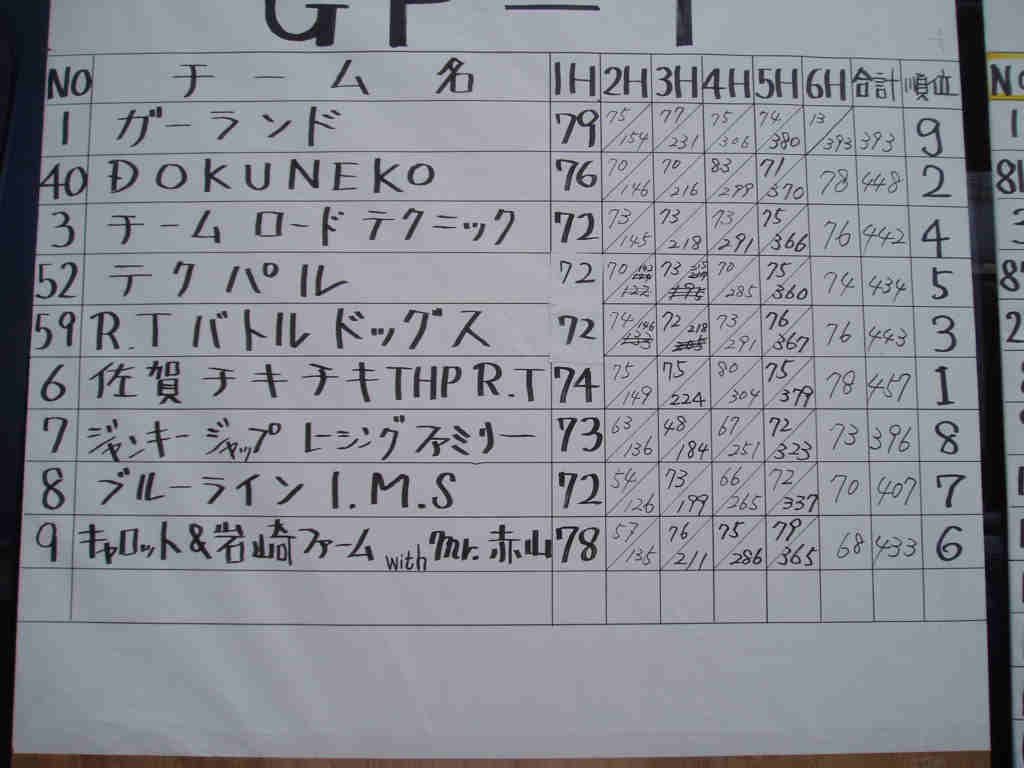 GP-1
NO チーム名 1H 2H 3H 4H 5H 6H 合計 順位
1 ガーランド 79 75/154 77/231 75/306 74/380 13/393 393 9
40 ĐOKUNEKO 76 70/146 70/216 83/299 71/370 78 448 2
3 チーム ロードテクニック 72 73/145 73/218 73/291 75/366 76 442 4
52 テクパル 72 70 73 70/285 75/360 74 434 5
59 R.T バトルドッグス 72 74/146 72/218 73/291 76/367 76 443 3
6 佐賀チキチキTHP R.T 74 75/149 75/224 80/304 75/379 78 457 1
7 ジャンキージャップ レーシングファミリー 73 63/136 48/184 67/251 72/323 73 396 8
8 ブルーライン I.M.S 72 54/126 73/199 66/265 72/337 70 407 7
9 キャロット&岩崎ファーム with Mr.赤山 78 57/135 76/211 75/286 79/365 68 433 6